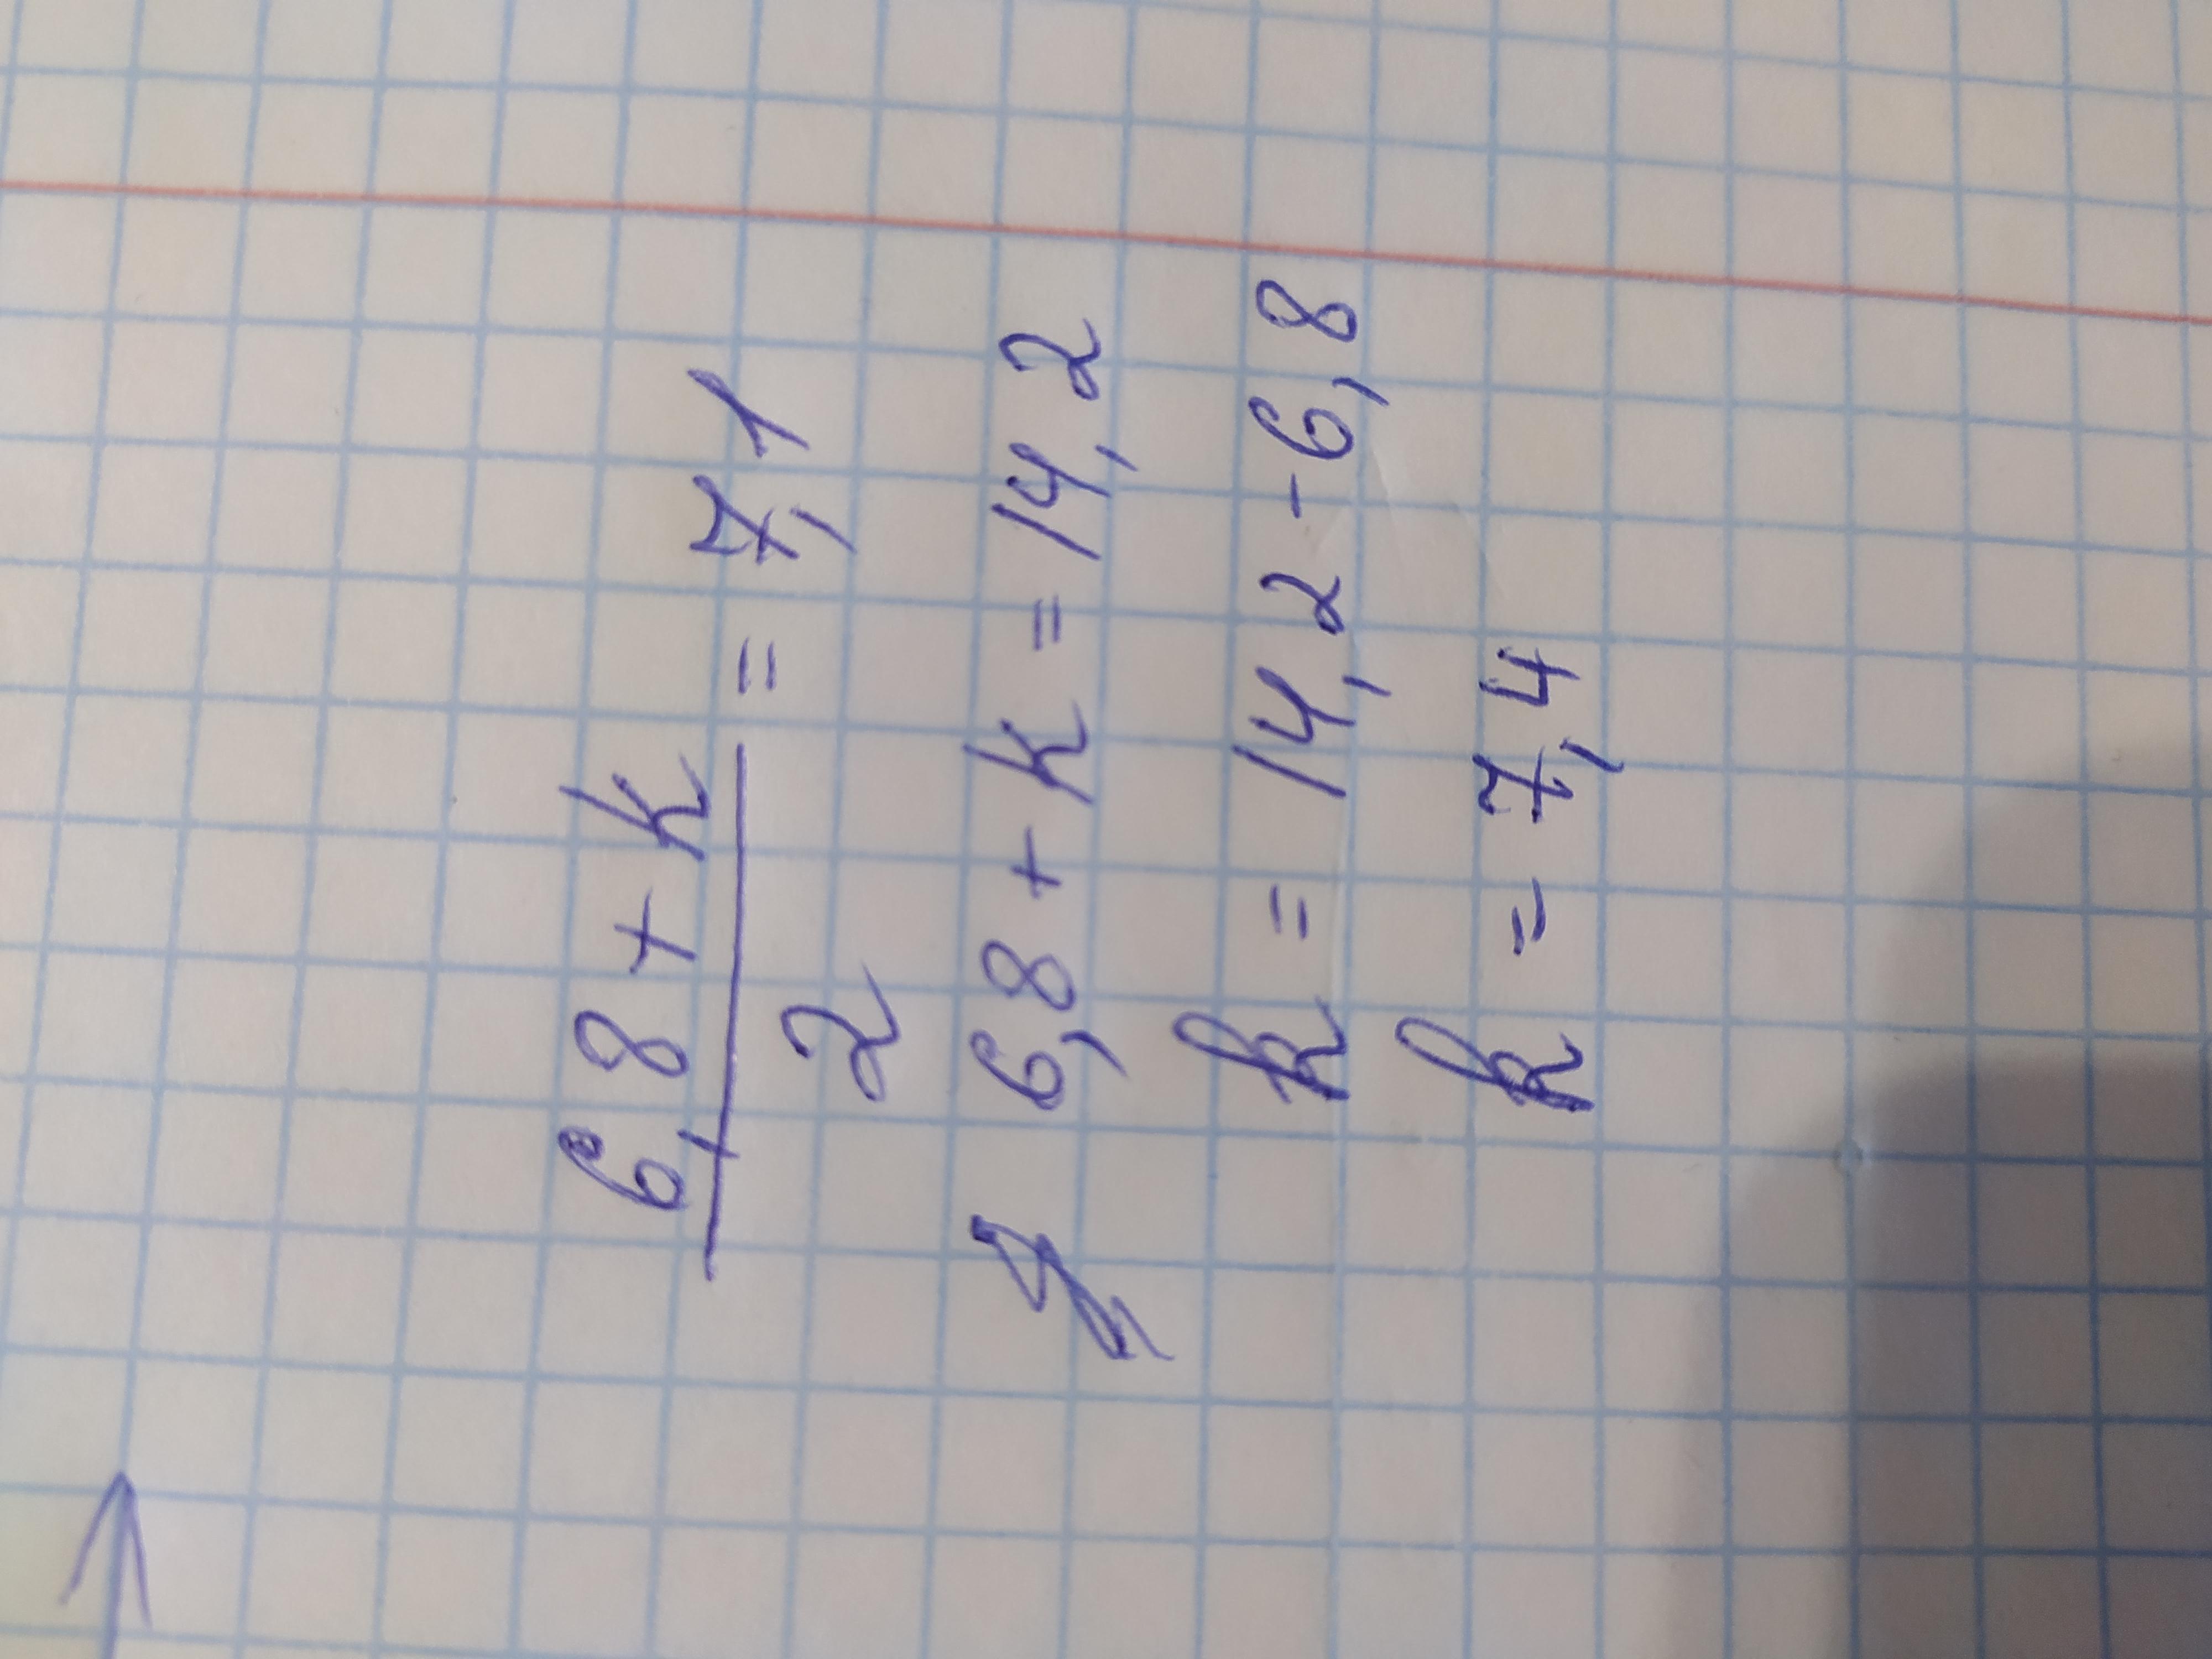 6,8 + k / 2 = 7,1
6,8 + k = 14,2
k = 14,2 - 6,8
k = 7,4